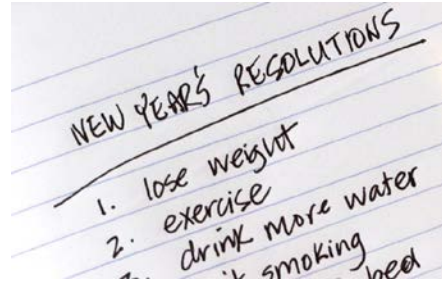 NEW YEAR'S RESOLUTIONS
1. lose weight
2. exercise
drink more water
smoking
bed